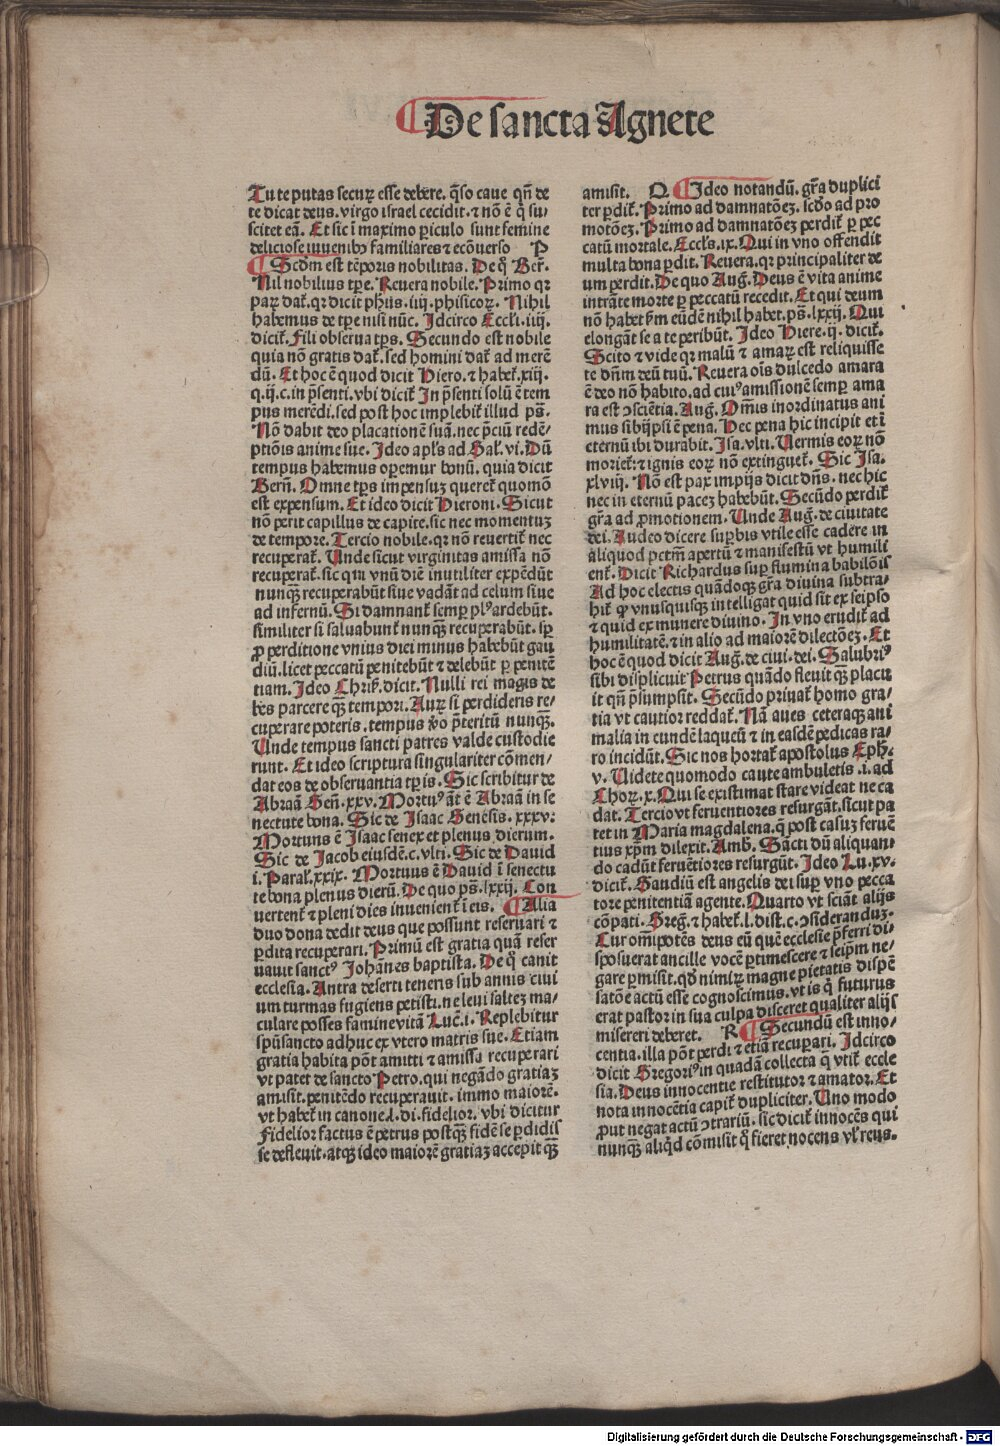 De sancta Agnete
Tu te putas securꝫ esse debere. q̃so caue qñ de
te dicat deus. virgo israel cecidit. ⁊ nõ ē q̇ su/
scitet eā. Et sic ī maximo ꝑiculo sunt femine
deliciose iuuenibꝰ familiares ⁊ ecōuerso P
Scd̃m est tēporis nobilitas. De q̊ Ber̃.
Nil nobilius tꝑe. Reuera nobile. Primo qꝛ
paꝝ daꝉ. qꝛ dicit pħus. iiij. phisicoꝝ. Nihil
habemus de tꝑe nisi nūc. Idcirco Eccli. iiij.
diciꝉ. Fili obserua tp̃s. Secundo est nobile
quia nō gratis daꝉ. sed homini daꝉ ad merē
dū. Et hoc ē quod dicit Hiero. ⁊ habeꝉ. xiij.
q. ij. c. in p̃senti. vbi diciꝉ In p̃senti solū ē tem
pus merēdi. sed post hoc implebiꝉ illud ps̃.
Nō dabit deo placationē suā. nec p̃ciū redē/
ptiōis anime sue. Ideo apl̃s ad Gal. vi. Dū
tempus habemus operemur bonū. quia dicit
Berñ. Omne tp̃s impensuꝫ quereꝉ quomō
est expensum. Et ideo dicit Hieroni. Sicut
nō perit capillus de capite. sic nec momentuꝫ
de tempore. Tercio nobile. qꝛ nō reuertiꝉ nec
recuperaꝉ. Unde sicut virginitas amissa nō
recuperaꝉ. sic qui vnū diē inutiliter expēdūt
nunqꝫ recuperabūt siue vadāt ad celum siue
ad infernū. Si damnanꝉ semper plꝰ ardebūt.
similiter si saluabunꝉ nunqꝫ recuperabūt. sꝫ
ꝓ perditione vnius diei minus habebūt gau
diū. licet peccatū penitebūt ⁊ delebūt ꝑ penitē
tiam. Ideo Chriß. dicit. Nulli rei magis de
bes parcere qꝫ tempori. Auꝝ si perdideris re/
cuperare poteris. tempus ꝟo p̃teritū nunqꝫ.
Unde tempus sancti patres valde custodie
runt. Et ideo scriptura singulariter cōmen/
dat eos de obseruantia tꝑis. Sic scribitur de
Abraā Geñ. xxv. Mortuꝰ āt ē Abraā in se
nectute bona. Sic de Isaac Genesis. xxxv:
Mortuus ē Isaac senex et plenus dierum.
Sic de Jacob eiusdē. c. vlti. Sic de Dauid
i. Paral. xxix. Mortuus ē Dauid ī senectu
te bona plenus dierū. De quo ps̃. lxxij. Con
uertenꝉ ⁊ pleni dies inuenienꝉ ī eis. Alia
duo dona dedit deus que possunt reseruari ⁊
ꝑdita recuperari. Primū est gratia quā reser
uauit sanctꝰ Johānes baptista. De q̊ canit
ecclesia. Antra deserti teneris sub annis ciui
um turmas fugiens petisti. ne leui salteꝫ ma/
culare posses famine vitā Luc̃. i. Replebitur
spū sancto adhuc ex vtero matris sue. Etiam
gratia habita pōt amitti ⁊ amissa recuperari
vt patet de sancto Petro. qui negādo gratiaꝫ
amisit. penitēdo recuperauit. immo maiorē.
vt habeꝉ in canone. l. di. fidelior. vbi dicitur
Fidelior factus ē petrus postqꝫ fidē se ꝑdidis
se defleuit. atqꝫ ideo maiorē gratiaꝫ accepit qꝫ
amisit. Q Ideo notandū. gr̃a duplici
ter ꝑdiꝉ. Primo ad damnatōeꝫ. scd̃o ad pro
motōeꝫ. Primo ad damnatōeꝫ perdiꝉ ꝑ pec
catū mortale. Eccl̃s. ix. Qui in vno offendit
multa bona ꝑdit. Reuera. qꝛ principaliter de
um perdit. De quo Aug̃. Deus ē vita anime
intrāte morte ꝑ peccatū recedit. Et qui deum
nō habet ẜm eūdē nihil habet. ps̃. lxxij. Qui
elongāt se a te peribūt. Ideo Hiere. ij. diciꝉ.
Scito ⁊ vide qꝛ malū ⁊ amaꝝ est reliquisse
te dñm deū tuū. Reuera oĩs dulcedo amara
ē deo nō habito. ad cuiꝰ amissionē semper ama
ra est ꝯsciētia. Aug̃. Om̃is inordinatus ani
mus sibijpsi ē pena. Hec pena hic incipit et ī
eternū ibi durabit. Isa. vlti. Uermis eoꝝ nō
morieꝉ: ⁊ ignis eoꝝ nō extingueꝉ. Sic Isa.
xlviij. Nō est pax impijs dicit dñs. nec hic
nec in eternū paceꝫ habebūt. Secūdo perdiꝉ
gr̃a ad ꝓmotionem. Unde Aug̃. de ciuitate
dei. Audeo dicere suꝑbis vtile esse cadere in
aliquod pctm̃ apertū ⁊ manifestū vt humili
enꝉ. Dicit Richardus suꝑ flumina babilōis
Ad hoc electis quādoqꝫ gr̃a diuina subtra/
hiꝉ ꝓ vnusquisqꝫ intelligat quid sit ex seipso
⁊ quid ex munere diuino. In vno erudiꝉ ad
humilitatē. ⁊ in alio ad maiorē dilectōeꝫ. Et
hoc ē quod dicit Aug̃. de ciui. dei. Salubriꝰ
sibi displicuit Petrus quādo fleuit qꝫ placu
it qñ p̃sumpsit. Secūdo priuaꝉ homo gra/
tia vt cautior reddaꝉ. Nā aues ceteraqꝫ ani
malia in eundē laqueū ⁊ in easdē pedicas ra/
ro incidūt. Sic nos hortaꝉ apostolus Eph̃.
v. Uidete quomodo caute ambuletis. i. ad
Choꝝ. x. Qui se existimat stare videat ne ca
dat. Tercio vt feruentiores resurgāt. sicut pa
tet in Maria magdalena. q̃ post casuꝫ feruē
tius xp̃m dilexit. Amb. Sācti dū aliquan/
do cadūt feruētiores resurgūt. Ideo Lu. xv.
diciꝉ. Gaudiū est angelis dei suꝑ vno pecca
tore penitentiā agente. Quarto vt sciāt alijs
cōpati. Greg̃. ⁊ habeꝉ. l. dist. c. ꝯsideranduꝫ.
Cur om̃ipotēs deus eū quē ecclesie p̃ferri di/
sposuerat ancille vocē ꝑtimescere ⁊ seip̃m ne/
gare ꝑmisit. qd̃ nimiꝝ magne pietatis dispē
satōe actū esse cognoscimus. vt is q̇ futurus
erat pastor in sua culpa disceret qualiter alijs
misereri deberet. R Secundū est inno/
centia. illa pōt perdi ⁊ etiā recuꝑari. Idcirco
dicit Gregoriꝰ in quadā collecta q̃ vtiꝉ eccle
sia. Deus innocentie restitutor ⁊ amator. Et
nota innocētia capiꝉ dupliciter. Uno modo
ꝓut negat actū ꝯtrariū. sic diciꝉ innocēs qui
nunqꝫ aliq̇d cōmisit q̊ fieret nocens vl̓ reus.
Digitalisierung gefördert durch die Deutsche Forschungsgemeinschaft - DFG